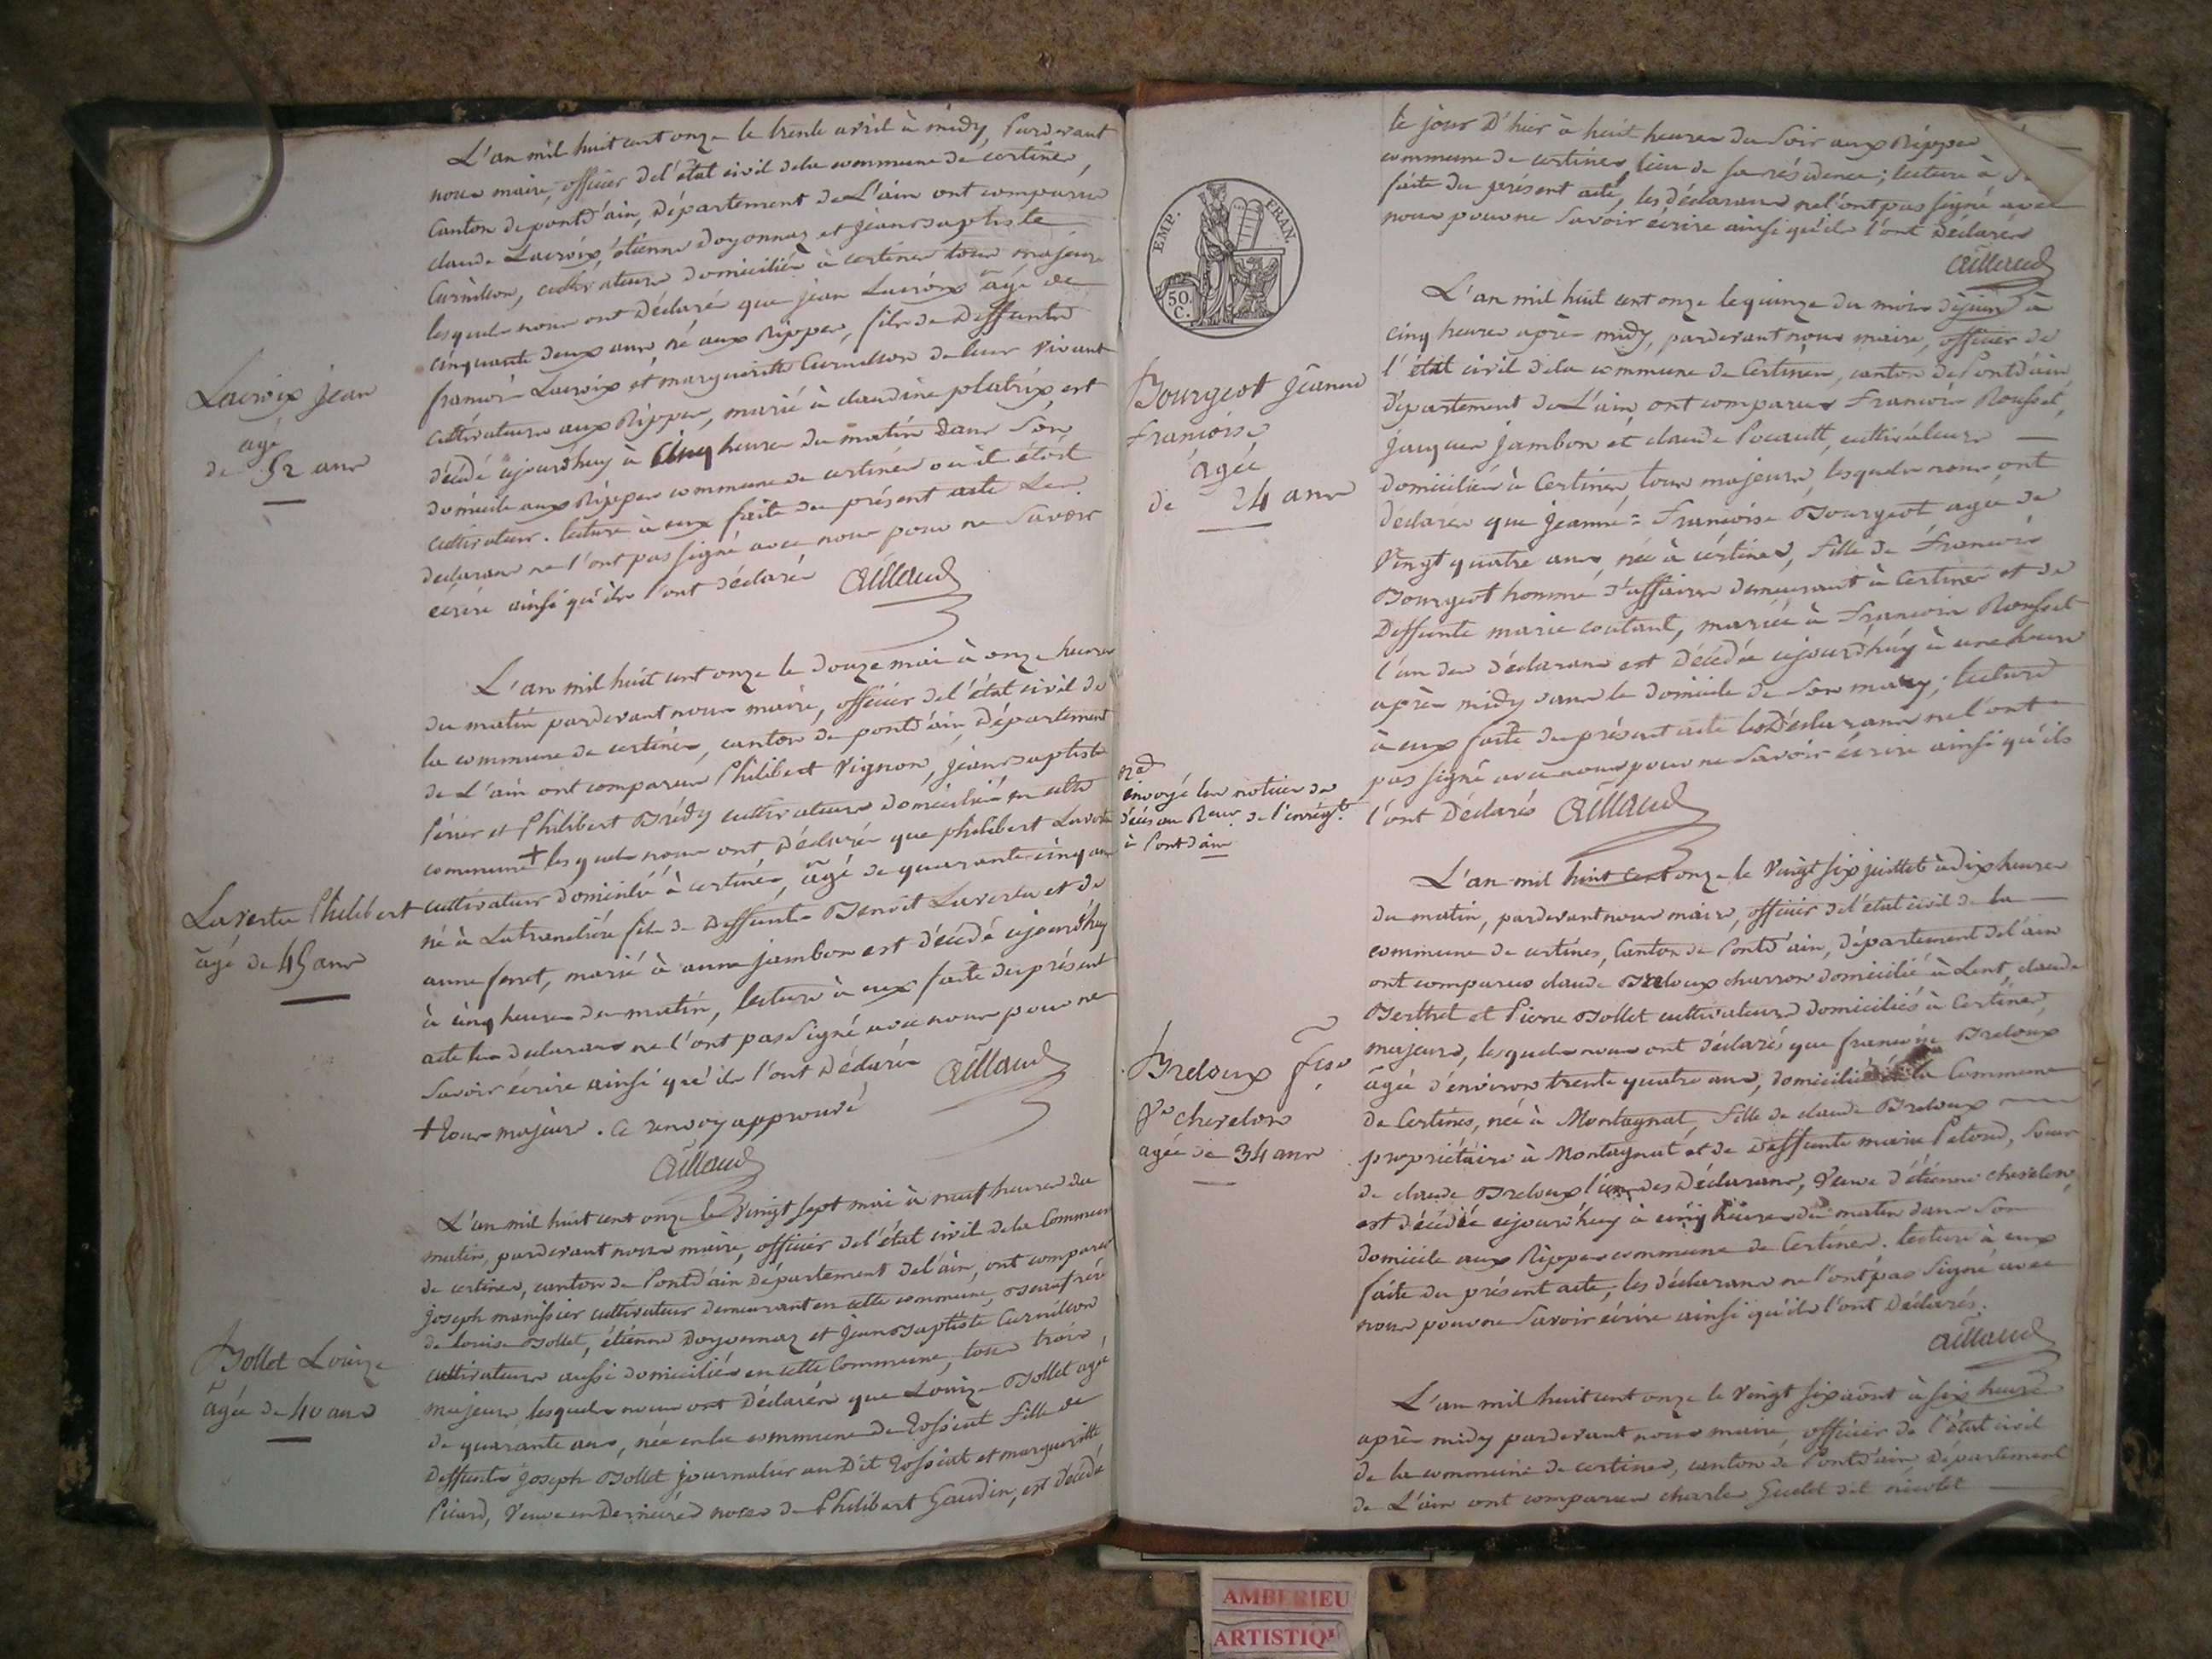 L'an mil huit cent onze le trente avril à midy, pardevant
nous maire, officier del'état civil dela commune de certines,
Canton de pontd'ain, Département de L'ain ont comparus
claude Lacroix, étienne Doyonnaz et jean Baptiste
Curnillon, cultivateurs domiciliés à certines tous majeurs
lesquels nous ont Déclaré que jean Lacroix âgé de
cinquante deux ans, né aux Rippes, fils de Deffunts
françois Lacroix et margueritte Curnillon de leur vivant
cultivateurs aux Rippes, marié à claudine platrix, est
décédé ajourd'huy à Cinq heures du matin dans son
domicile aux Rippes commune de certines où il étoit
cultivateur. lecture à eux faite du présent acte Les
declarans ne l'ont pas signé avec nous pour ne savoir
écrire ainsi qu'ils l'ont déclarés
Aillaud
Lacroix jean
agé
de 52 ans
L'an mil huit cent onze le douze mai à onze heures
du matin pardevant nous maire, officier del'état civil de
la commune de certines, canton de pontd'ain, Département
de L'ain ont comparus Philibert Vignon, jean Baptiste
Périer et Philibert Brédy cultivateurs domiciliés en cette
commune + lesquels nous ont Déclarés que philibert Lavertu
cultivateur domicilié à certines, âgé de quarante cinq ans
né à Latranclière fils de Deffunts Benoit Lavertu et de
anne ferret, marié à anne jambon est décédé ajourd'huy
à cinq heures du matin, lecture à eux faite du présent
acte les declarans ne l'ont pas signé avec nous pour ne
savoir écrire ainsi qu'ils l'ont Déclarés
Aillaud
+ tous majeurs. Ce renvoy approuvé
Aillaud
Lavertu Philibert
âgé de 45 ans
L'an mil huit cent onze le Vingt sept mai à neuf heures du
matin, pardevant nous maire, officier del'état civil dela Commune
de certines, canton de Pontd'ain Département del'ain, ont comparus
joseph manissier cultivateur demeurant en cette commune, Beaufrère
de Louise Bollet, étienne Doyonnaz et jean Baptiste Curnillon
cultivateurs aussi domiciliés en cette Commune, tous trois
majeurs, lesquels nous ont Déclarés que Louize Bollet agée
de quarante ans, née en la commune de Tossiat fille de
Deffunts joseph Bollet journalier au Dit Tossiat et margueritte
Picard, Veuve en Dernières noces de Philibert Gaudin, est décédé
Bollet Louize
âgée de 40 ans
le jour D'hier à huit heures du soir aux Rippes
commune de certines, lieu de sa résidence; lecture à
faite du présent acte, les déclarans nel'ont pas signé avec
nous pour ne savoir écrire ainsi qu'ils l'ont Déclarés
Aillaud
EMP. FRAN.
50.
C.
L'an mil huit cent onze le quinze du mois dejuin à
cinq heures après midy, pardevant nous maire, officier de
l'état civil dela commune de Certines, canton de Pontd'ain
Département de L'ain, ont comparus François Rousset,
jacques jambon et claude Pocault, cultivateurs
domiciliés à Certines, tous majeurs, lesquels nous ont
déclarés que jeanne = Françoise Bourgeot agée de
Vingt quatre ans, née à certines, fille de François
Bourgeot homme d'affaires demeurant à Certines et de
Deffunte marie coutant, mariée à François Rousset
l'un des déclarans est Décédée ajourd'huy à une heure
après midy dans le domicile de son mary; lecture
à eux faite du présent acte les Déclarans ne l'ont
pas signé avec nous pour ne savoir écrire ainsi qu'ils
l'ont Déclarés Aillaud
Bourgeot jeanne
françoise
âgée
de 24 ans
envoyé les notices de
décès au Receur de l'enrégt.
à Pontd'ain
L'an mil huit cent onze le Vingt six juillet à dix heures
du matin, pardevant nous maire, officier del'état civil de la
commune de certines, Canton de Pontd'ain, département del'ain
ont comparus claude Breloux charron domicilié à Lent, claude
Berthet et Pierre Bollet cultivateurs domiciliés à Certines,
majeurs, lesquels nous ont déclarés que françoise Breloux
âgée d'environ trente quatre ans, domiciliée la Commune
de Certines, née à Montagnat, fille de claude Breloux
propriétaire à Montagnat et de Deffunte marie Petoud, soeur
de claude Breloux l'un des Déclarans, Veuve d'étienne chevelon,
est décédée ajourd'huy à cinq heures du matin dans son
domicile aux Rippes commune de Certines. lecture à eux
faite du présent acte, les déclarans ne l'ont pas signé avec
nous pour ne savoir écrire ainsi qu'ils l'ont Déclarés.
Aillaud
Breloux fse
Ve chevelon
agée de 34 ans
L'an mil huit cent onze le vingt six août à six heures
après midy pardevant nous maire, officier de l'état civil
de la commune de certines, canton de Pontd'ain, département
de L'ain ont comparus charles Guelet dit nicolet
AMBERIEU
ARTISTIQU